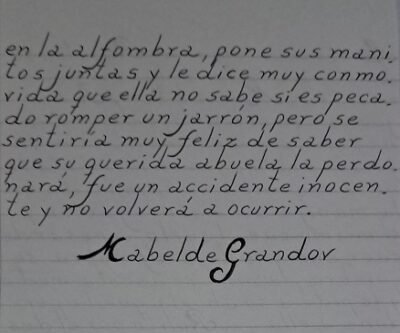 en la alfombra, pone sus mani.
tos juntas y le dice muy conmo.
vida que ella no sabe si es peca.
do romper un jarrón, pero se
sentiría muy feliz de saber
que su querida abuela la perdo.
nará, fue un accidente inocen.
te y no volverá a ocurrir.
Mabel de Grandov